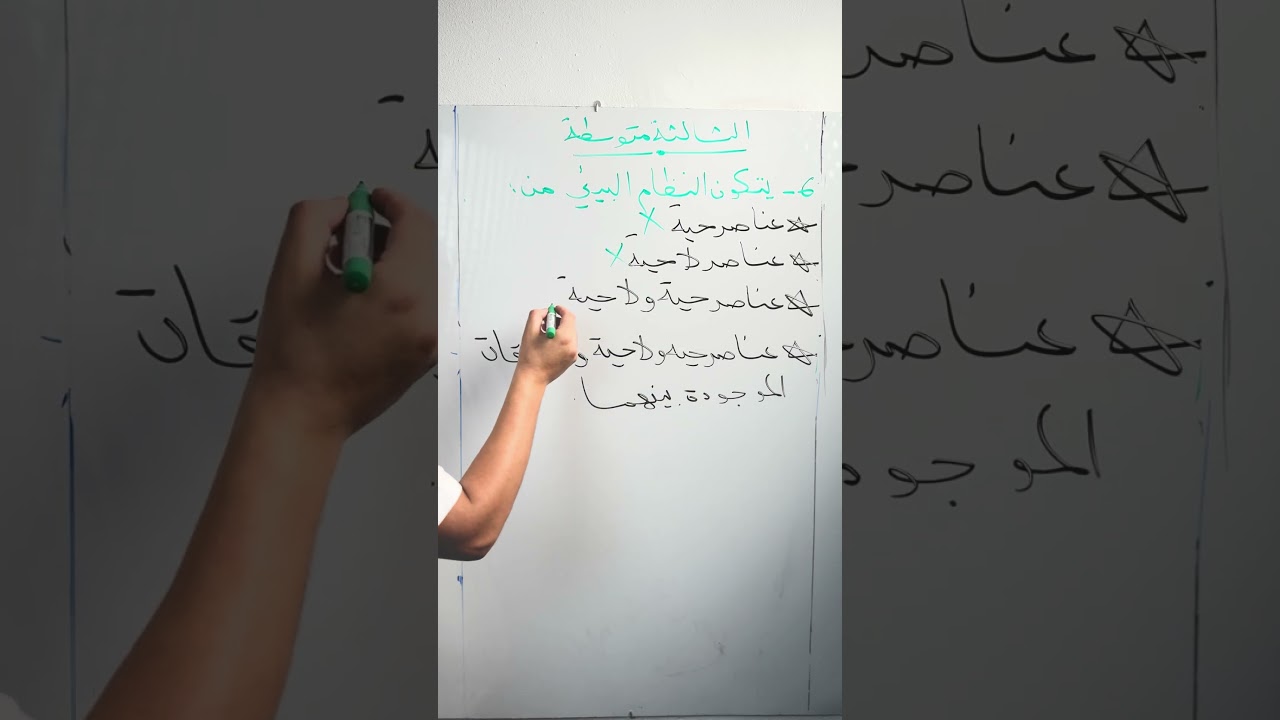 الثالثة متوسطة
6- يتكون النظام البيئي من :
عناصر حية X
عناصر لا حية X
عناصر حية ولا حية
عناصر حية ولا حية
الموجودة بينهما .